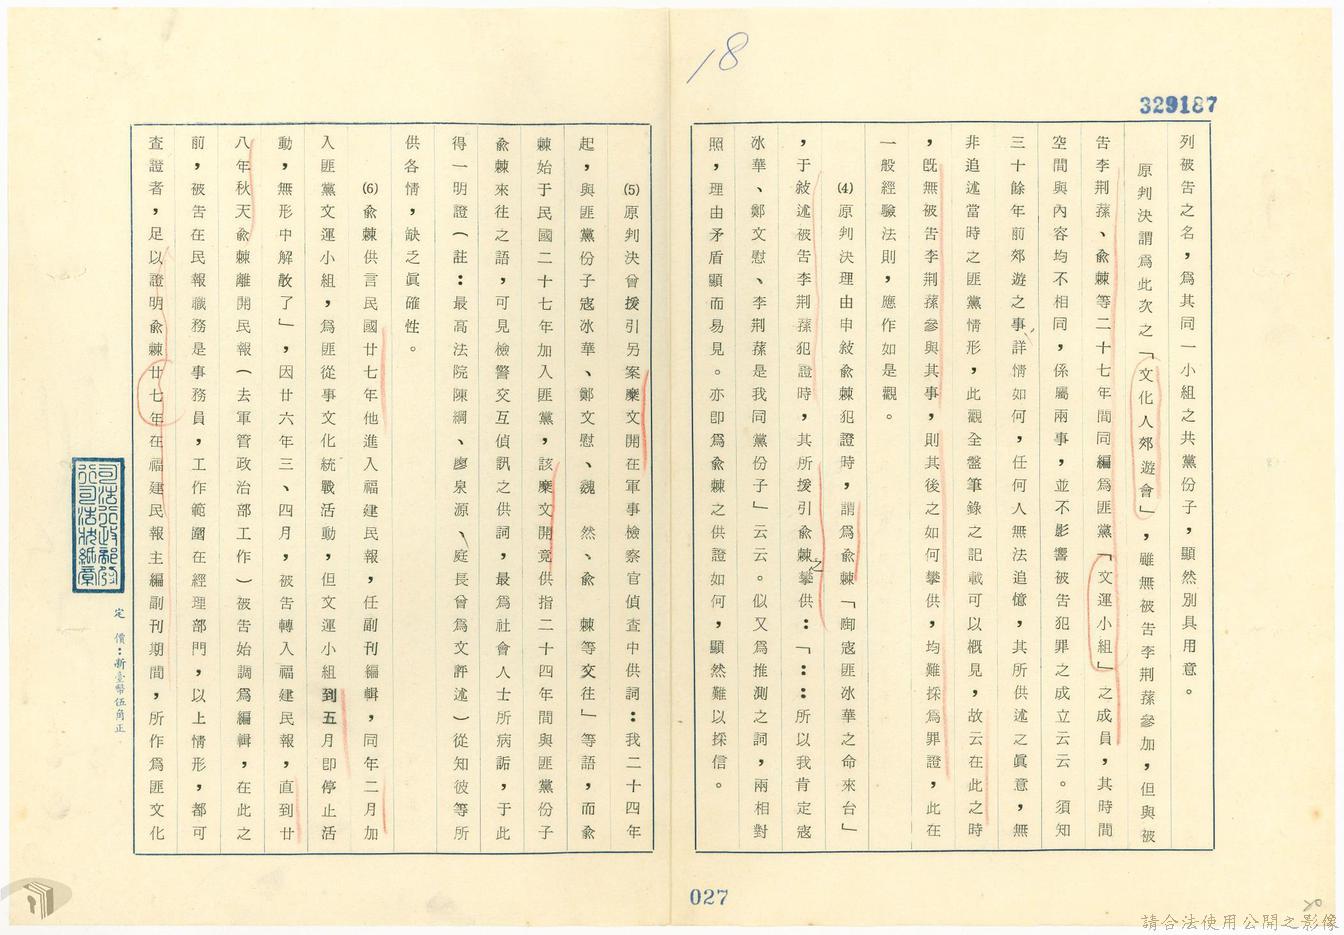 18
329187
列被告之名，爲其同一小組之共黨份子，顯然別具用意。
原判決謂爲此次之「文化人郊遊會」，雖無被告李荆蓀參加，但與被
告李荆蓀、俞棘等二十七年間同編爲匪黨「文運小組」之成員，其時間
空間與內容均不相同，係屬兩事，並不影響被告犯罪之成立云云。須知
三十餘年前郊遊之事詳情如何，任何人無法追憶，其所供述之眞意，無
非追述當時之匪黨情形，此觀全盤筆錄之記載可以概見，故云在此之時
，既無被告李荆蓀參與其事，則其後之如何攀供，均難採爲罪證，此在
一般經驗法則，應作如是觀。
⑷原判決理由申敍俞棘犯證時，謂爲俞棘「啣寇匪冰華之命來台」
，于敍述被告李荆蓀犯證時，其所援引俞棘之攀供：「：：所以我肯定寇
冰華、鄭文慰、李荆蓀是我同黨份子」云云。似又爲推測之詞，兩相對
照，理由矛盾顯而易見。亦即爲俞棘之供證如何，顯然難以採信。
⑸原判決曾援引另案麋文開在軍事檢察官偵查中供詞：我二十四年
起，與匪黨份子寇冰華、鄭文慰、魏　然、俞　棘等交往」等語，而俞
棘始于民國二十七年加入匪黨，該麋文開竟供指二十四年間與匪黨份子
俞棘來往之語，可見檢警交互偵訊之供詞，最爲社會人士所病詬，于此
得一明證（註：最高法院陳綱、廖泉源、庭長曾爲文評述）從知彼等所
供各情，缺之眞確性。
⑹俞棘供言民國廿七年他進入福建民報，任副刊編輯，同年二月加
入匪黨文運小組，爲匪從事文化統戰活動，但文運小組到五月即停止活
動，無形中解散了」，因廿六年三、四月，被告轉入福建民報，直到廿
八年秋天俞棘離開民報（去軍管政治部工作）被告始調爲編輯，在此之
前，被告在民報職務是事務員，工作範圍在經理部門，以上情形，都可
查證者，足以證明俞棘廿七年在福建民報主編副刊期間，所作爲匪文化
司法行政部發行司法狀紙章
定　價：新臺幣伍角正
027
請合法使用公開之影像